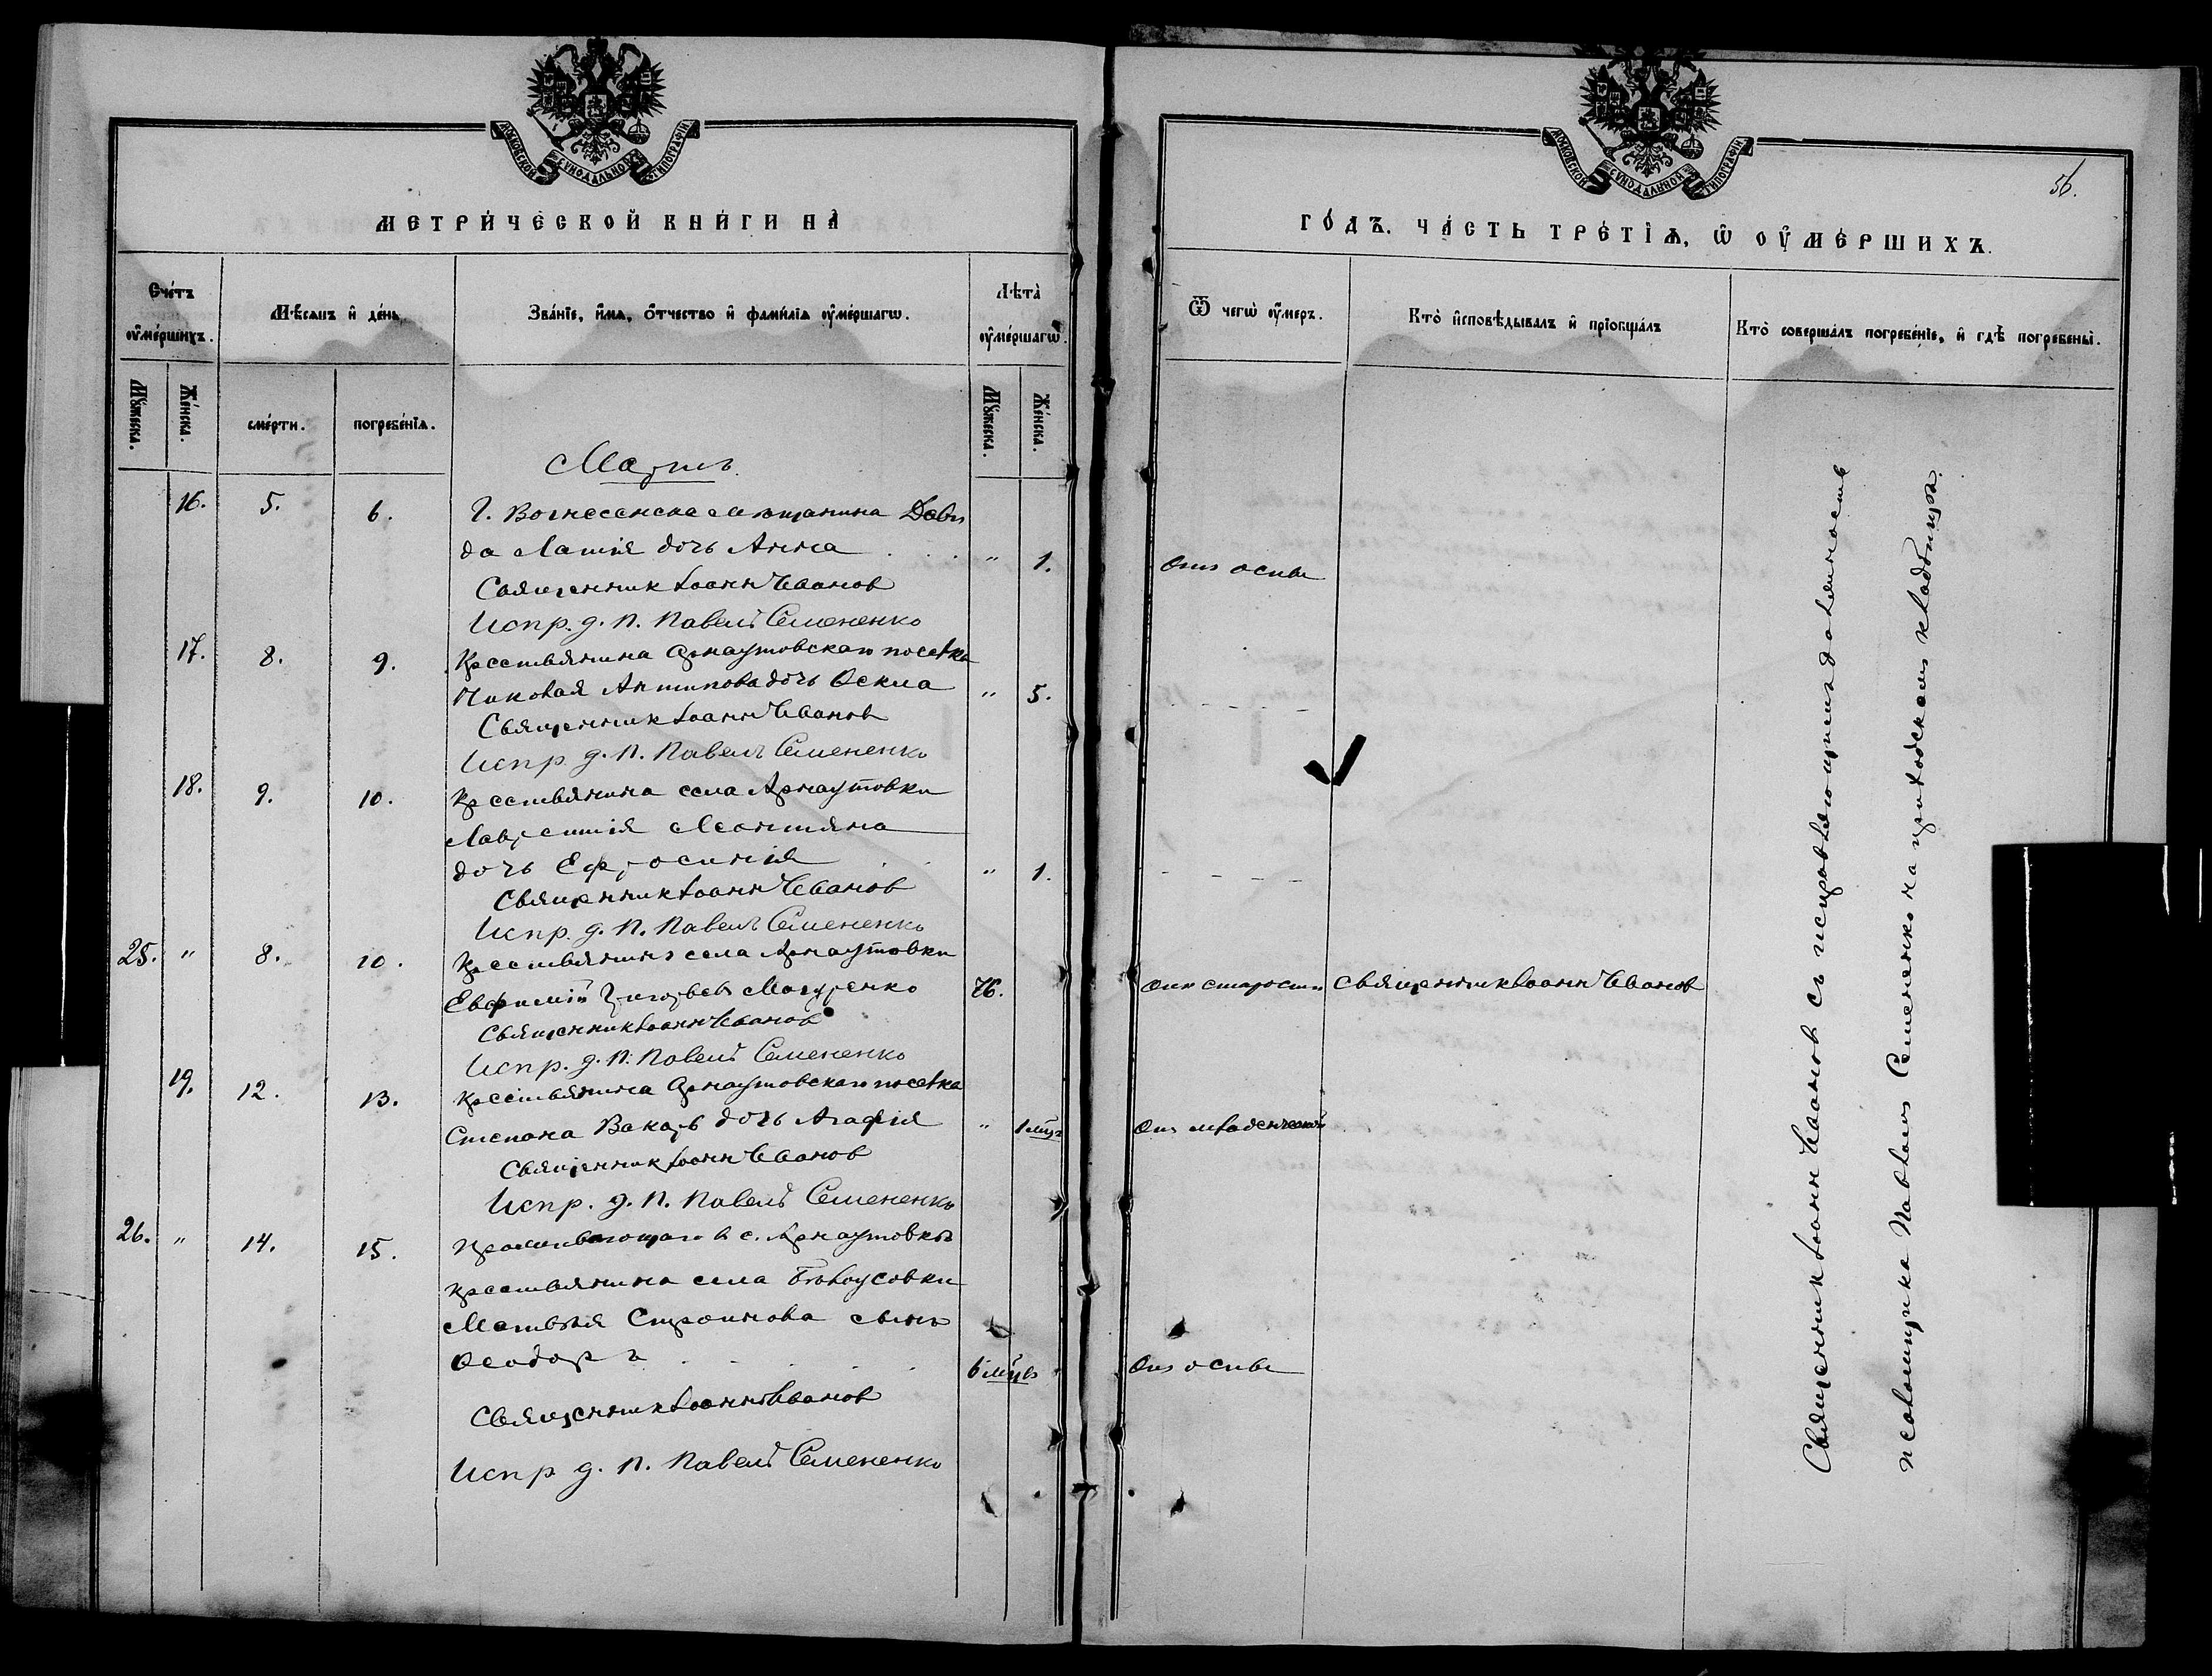 МОСКОВСКОЙ СѴНОДАЛЬНОЙ ТИПОГРАФІИ
МЕТРИ́ЧЕСКОЙ КНИ́ГИ НА̀
Сче́тъ ᲂу҆ме́ршихъ.
Мѣ́сяцъ и҆ де́нь.
Зва́нїе, и҆́мѧ, ѻ҆́тчество и҆ фами́лїѧ ᲂу҆ме́ршагѡ.
Лѣта̀ ᲂу҆ме́ршагѡ.
Мꙋ́жеска.
Же́нска.
сме́рти.
погребе́нїѧ.
Мꙋ́жеска.
Же́нска.
Мартъ.
16. 5. 6. Г. Вознесенска мѣщанина Дави
да Латія дочь Анна . . . " 1.
Священник Іоанн Иванов
Испр. д. П. Павелъ Семененко
17. 8. 9. Крестьянина Арнаутовскаго поселка
Антипова дочь Ѳекла " 5.
Священник Іоанн Иванов
Испр. д. П. Павелъ Семененко
18. 9. 10. Крестьянина села Арнаутовки
Лаврентія Леонтяна
дочь Ефросинія " 1.
Священник Іоанн Иванов
Испр. д. П. Павелъ Семененко
25. " 8. 10. Крестьянинъ села Арнаутовки
Евфимій Григорьев 76.
Священник Іоанн Иванов
Испр. д. П. Павелъ Семененко
19. 12. 13. Крестьянина Арнаутовскаго поселка
Степана Вакарь дочь Агафія " 1 мѣц
Священник Іоанн Иванов
Испр. д. П. Павелъ Семененко
26. " 14. 15. Проживающаго в с. Арнаутовкѣ
крестьянина села Бѣлоусовки
Матвѣя Строинова сынъ
Ѳеодоръ . . . . 6 мѣцв
Священник Іоанн Иванов
Испр д. П. Павелъ Семененко
МОСКОВСКОЙ СѴНОДАЛЬНОЙ ТИПОГРАФІИ
56.
ГО́ДЪ. ЧА́СТЬ ТРЕ́ТЇѦ, Ѡ҆ ОУ҆МЕ́РШИХЪ.
Ѿ чегѡ̀ ᲂу҆́меръ.
Кто̀ и҆сповѣ́дывалъ и҆ прїѻбща́лъ
Кто̀ соверша́лъ погребе́нїе, и҆ гдѣ̀ погребены̀.
От оспы
От старости Священник Іоанн Иванов
От младенческой
От оспы
Священник Іоанн Иванов съ исправляющимъ должность
псаломщика Павлом Семененко на приходском кладбищѣ.